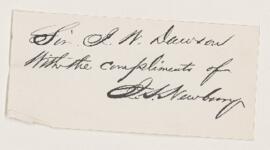 Sir J. W. Dawson
With the compliments of
J. S. Newberry